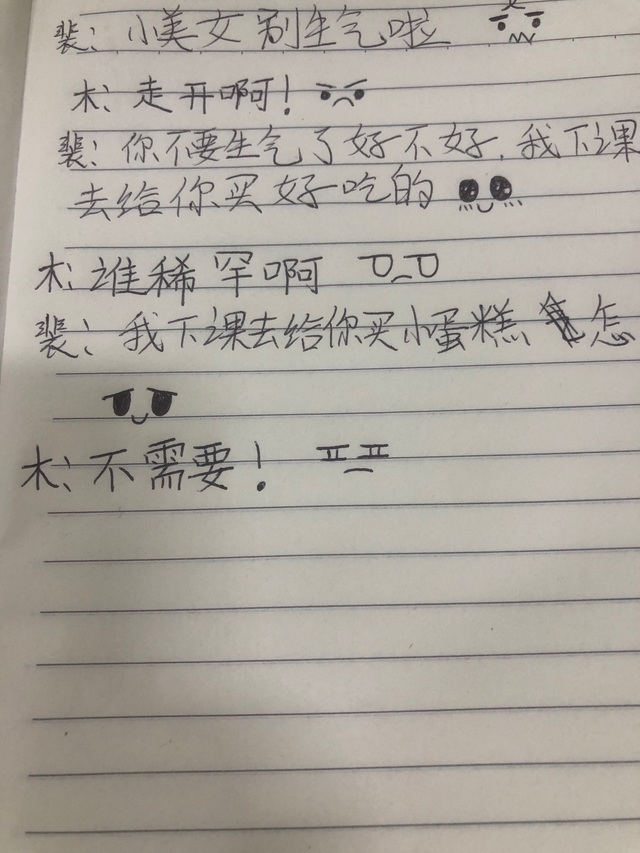 裴：小美女别生气啦
木：走开啊！
裴：你不要生气了好不好，我下课
去给你买好吃的
木：谁稀罕啊
裴：我下课去给你买小蛋糕，怎
木：不需要！